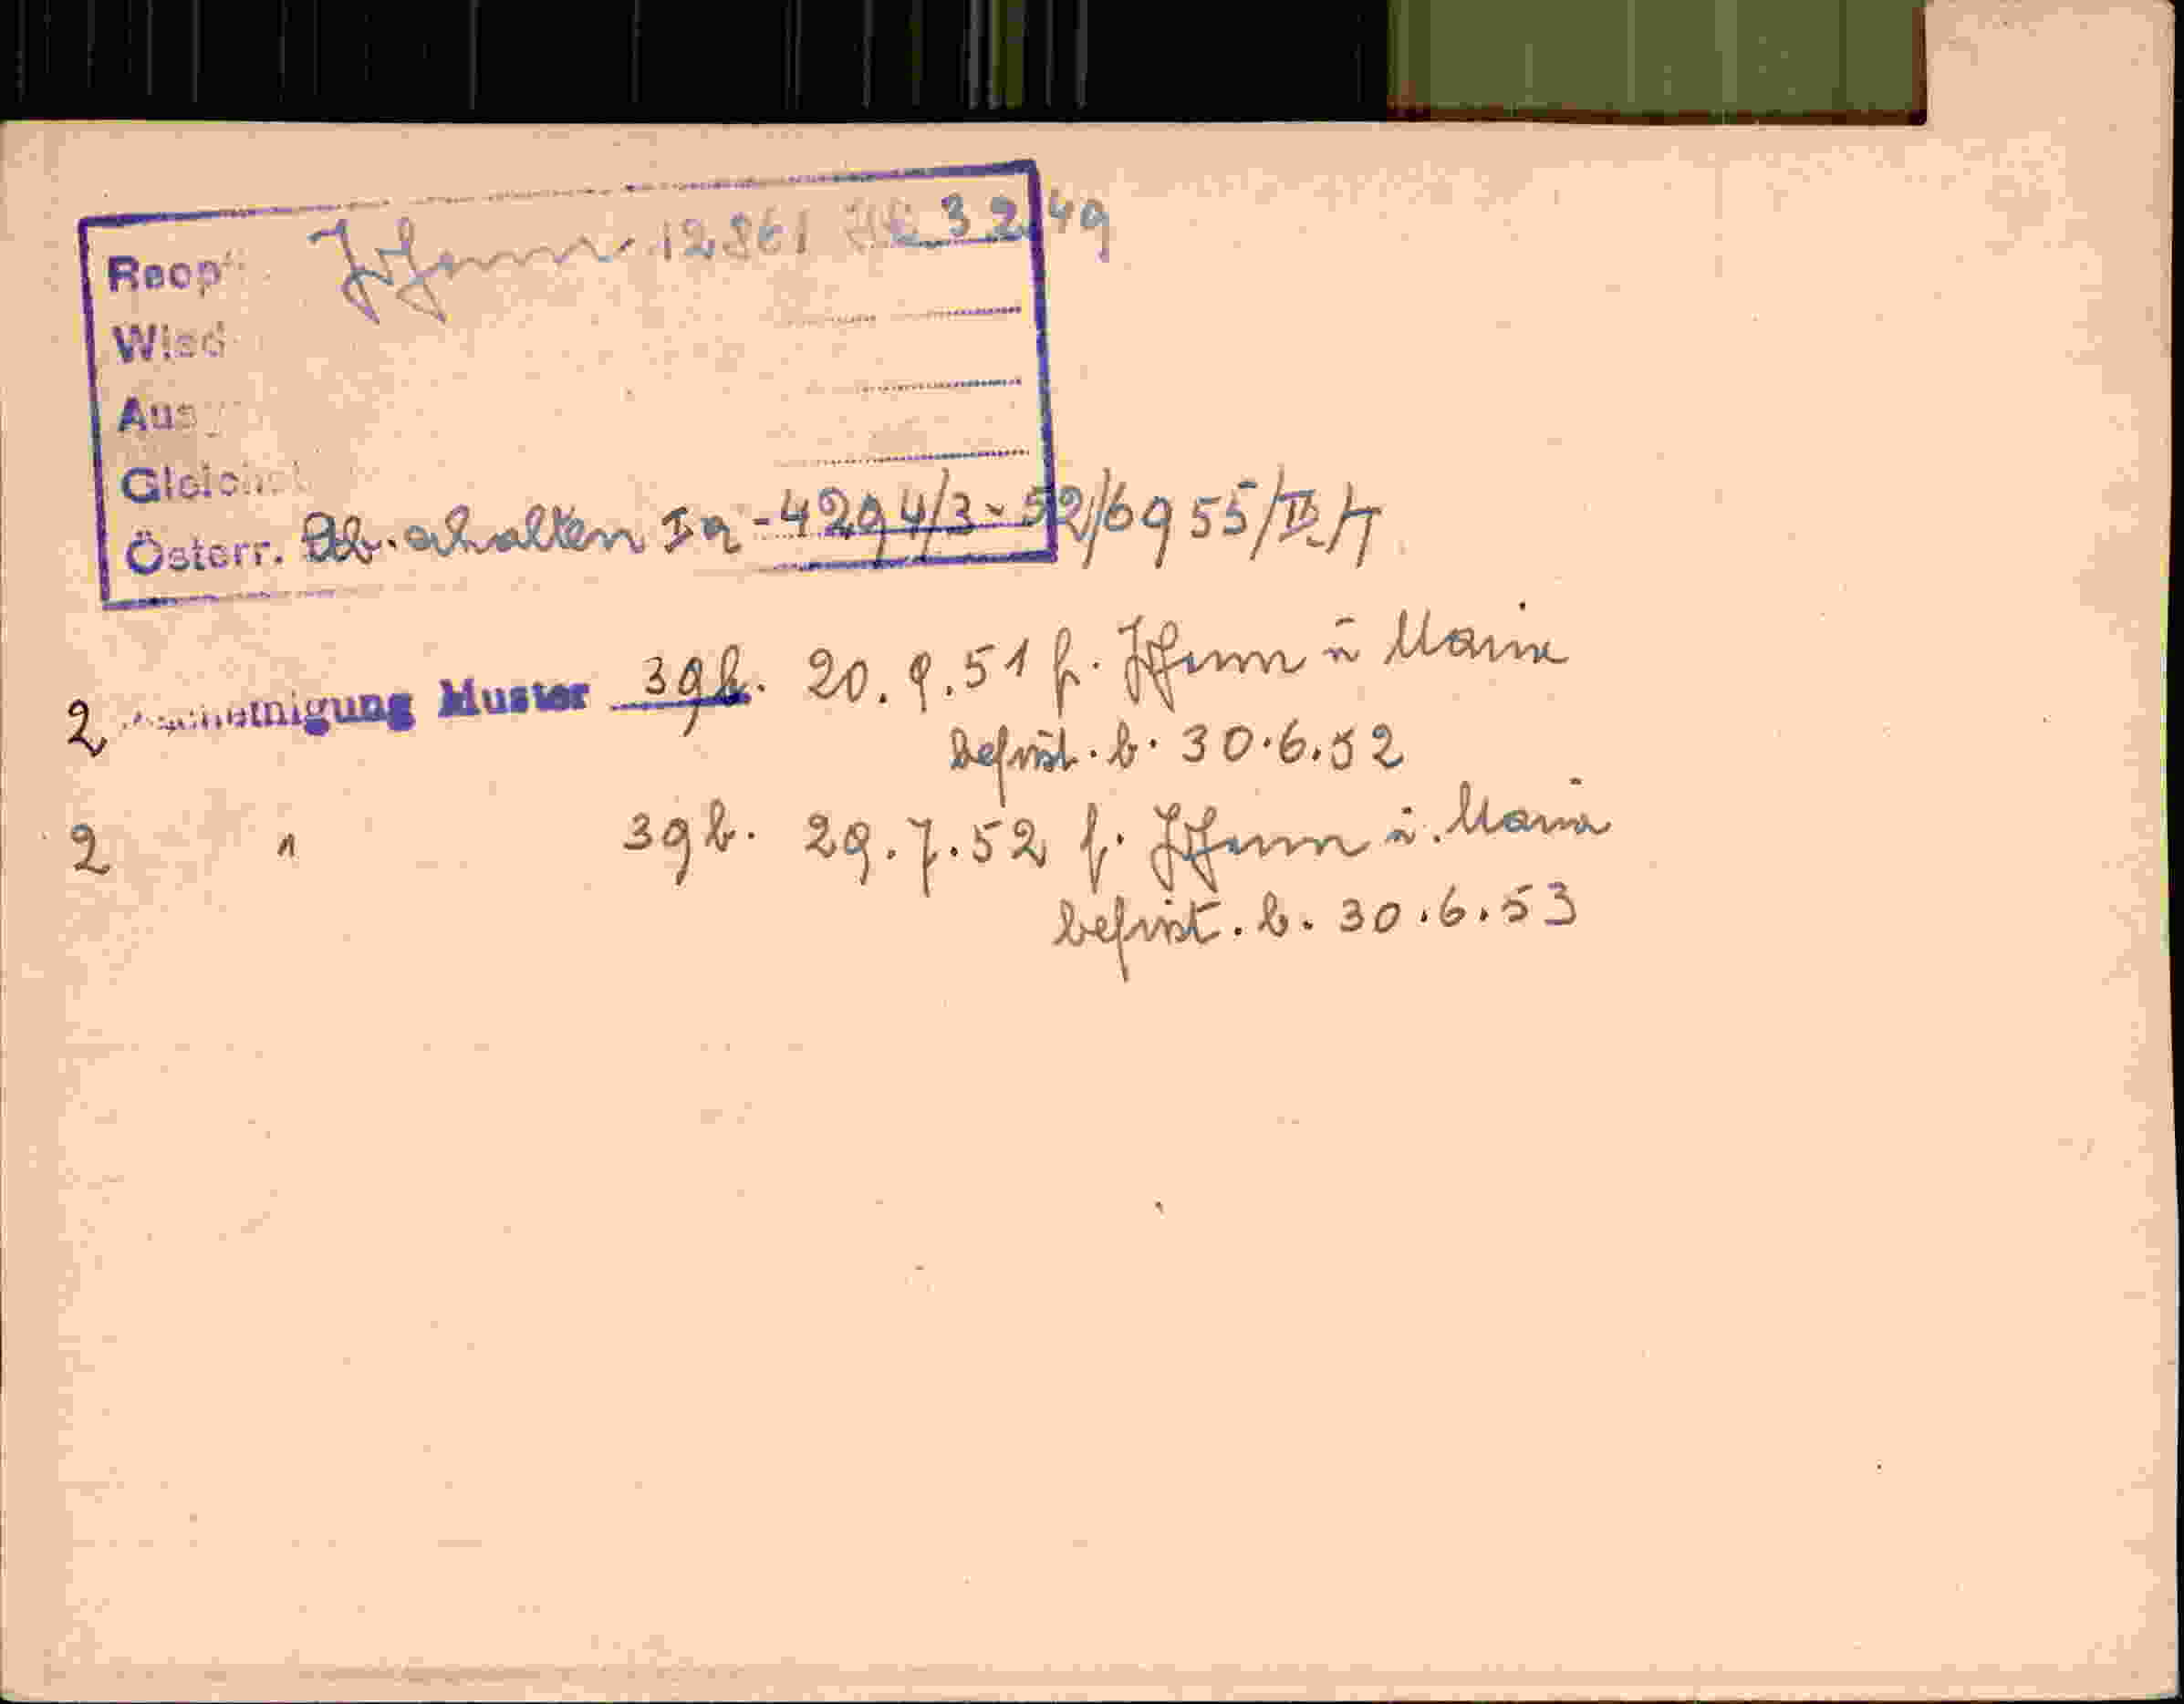 Reopt. Johann 12861 3.2.49
Wied
Ausg
Gleichst
Österr. Stb. erhalten Ia - 4294/3-52//6955/II/4
2 Bescheinigung Muster 39b. 20.9.51 f. Johann u Maria
befrist. b. 30.6.52
2 " 39b. 29.7.52 f. Johann u. Maria
befrist. b. 30.6.53